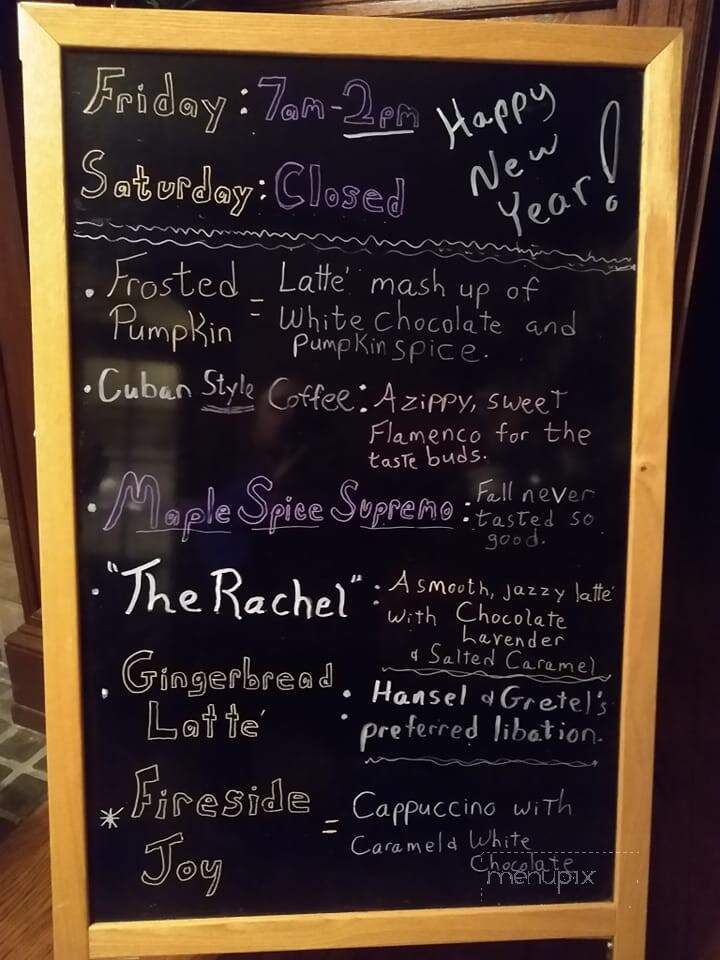 Friday: 7am-2pm
Saturday: Closed
Happy
New
Year!
• Frosted
Pumpkin
= Latté mash up of
White Chocolate and
pumpkin spice.
• Cuban Style Coffee: A zippy, sweet
Flamenco for the
taste buds.
• Maple Spice Supremo: Fall never
tasted so
good.
• "The Rachel": A smooth, jazzy latté
with Chocolate
Lavender
& Salted Caramel
• Gingerbread
Latté
: Hansel & Gretel's
preferred libation.
* Fireside
Joy
= Cappuccino with
Caramel & White
Chocolate
menupix